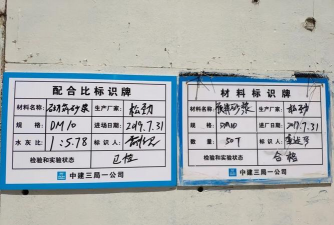 配合比标识牌
材料名称: 砂浆
生产厂家: 松劲
规 格: DM10
进场日期: 2019.7.31
水灰比: 1:5.78
标识人:
检验和实验状态 已检
中建三局一公司
材料标识牌
材料名称: 砂浆
生产厂家: 松劲
规 格: DM10
进厂日期: 2019.7.31
数 量: 50T
标识人:
检验和实验状态 合格
中建三局一公司